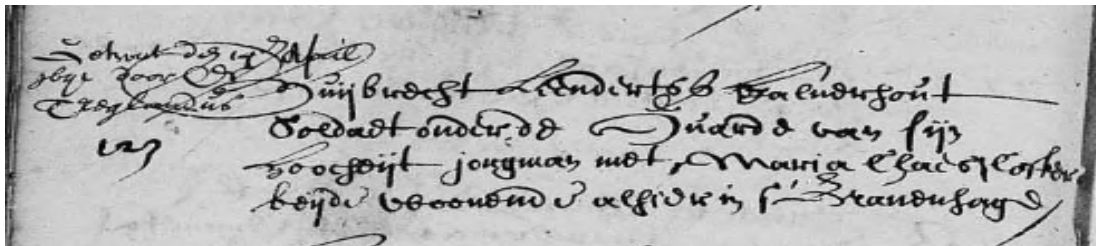 Getrout den 17 April
door
Huijbrecht Leendertsz Calverhout
Soldaet onder de Guarde van sijn
hoocheijt jongman met, Maria Claes
beijde woonende alhier in s'Gravenhage